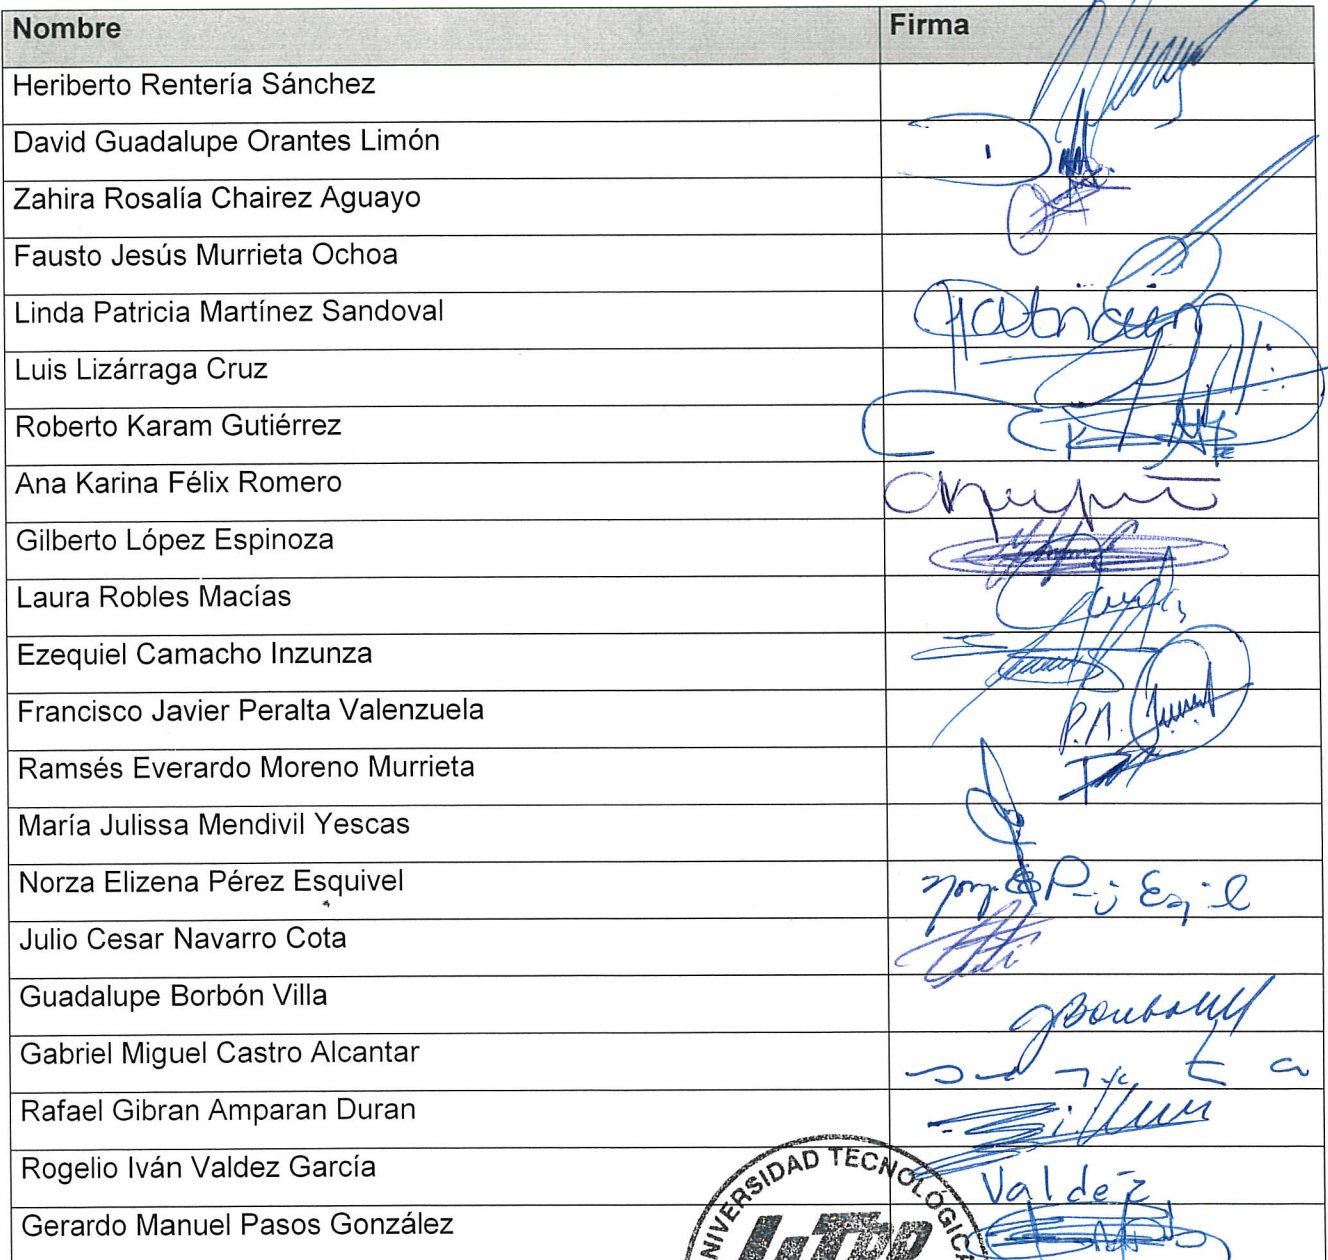 Nombre Firma
Heriberto Rentería Sánchez
David Guadalupe Orantes Limón
Zahira Rosalía Chairez Aguayo
Fausto Jesús Murrieta Ochoa
Linda Patricia Martínez Sandoval
Luis Lizárraga Cruz
Roberto Karam Gutiérrez
Ana Karina Félix Romero
Gilberto López Espinoza
Laura Robles Macías
Ezequiel Camacho Inzunza
Francisco Javier Peralta Valenzuela P.A.
Ramsés Everardo Moreno Murrieta
María Julissa Mendivil Yescas
Norza Elizena Pérez Esquivel
Julio Cesar Navarro Cota
Guadalupe Borbón Villa
Gabriel Miguel Castro Alcantar
Rafael Gibran Amparan Duran
Rogelio Iván Valdez García Valdéz
Gerardo Manuel Pasos González